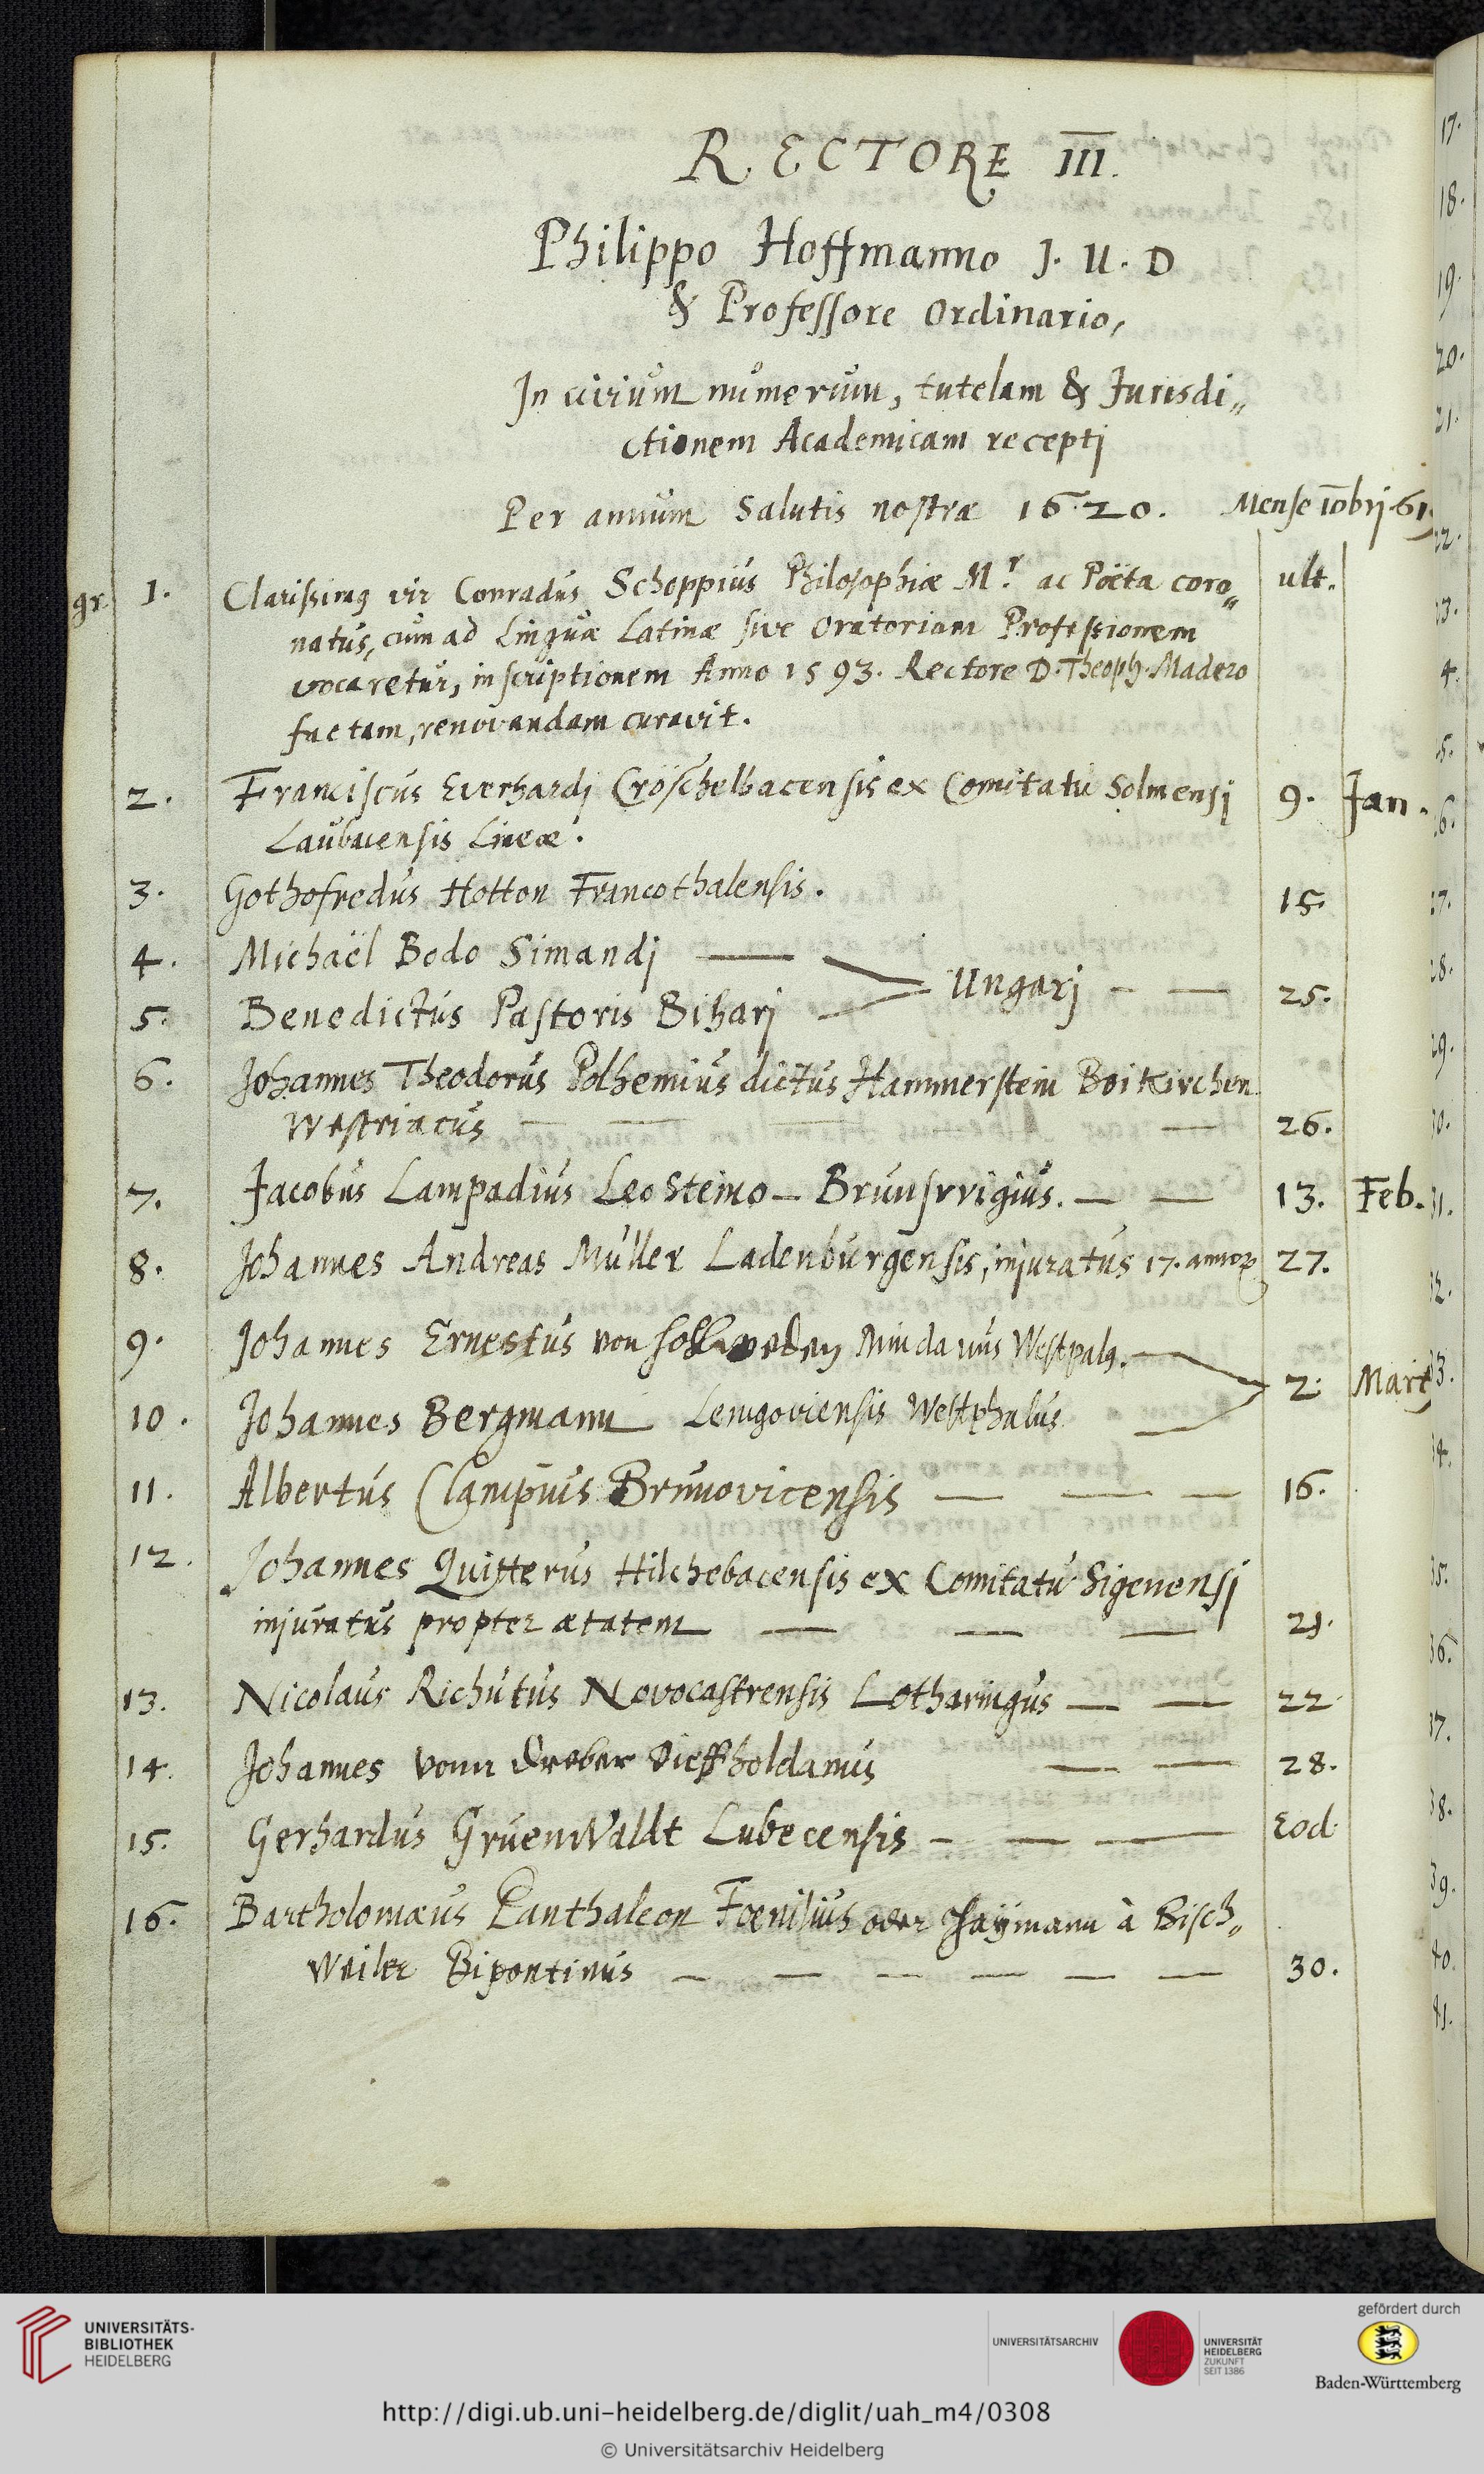 RECTORE III.
Philippo Hoffmanno J. U. D
& Professore Ordinario,
In civium numerum, tutelam & Jurisdi„
ctionem Academicam receptj
Per annum Salutis nostræ 1620. Mense 10brj
gr. 1. Clarissimq vir Conradus Schoppius Philosophiæ M.r ac Poëta coro„ ult.
natus, cum ad Linguæ Latinæ sive Oratoriam Professionem
vocaretur, inscriptionem Anno 1593. Rectore D. Theoph. Madero
factam, renovandam curavit.
2. Franciscus Everhardj Cröschelbacensis ex Comitatu Solmensj 9. Jan.
Laubacensis Lineæ.
3. Gothofredus Hotton Francothalensis. 15.
4. Michaël Bodo Simandj
Ungarj 25.
5. Benedictus Pastoris Biharj
6. Johannes Theodorus Polhemius dictus Hammerstein Boikirchen
Westriacus 26.
7. Jacobus Lampadius Leo Steino - Brunsvvigius. 13. Feb.
8. Johannes Andreas Müller Ladenburgensis, injuratus 17. 27.
9. Johannes Ernestus von Mindanus Westpalq.
2. Mart
10. Johannes Bergmann Lemgoviensis Westphalus
11. Albertus Clampius Brunovicensis 16.
12. Johannes Quitterus Hilchebacensis ex Comitatu Sigenensj
injuratus propter ætatem 21.
13. Nicolaus Richutus Novocastrensis Lotharingus 22
14. Johannes vonn Dreber Dieffholdanus 28.
15. Gerhardus GruenWaldt Lubecensis Eod.
16. Bartholomæus Panthaleon Fœnilius oder Haÿmann à Bisch„
Weiler Bipontinus 30.
17.
18.
19.
20.
21.
22.
23.
4.
5.
6.
27.
28.
29.
30.
31.
32.
33.
34.
35.
36.
37.
38.
39.
40.
41.
UNIVERSITÄTS-
BIBLIOTHEK
HEIDELBERG
UNIVERSITÄTSARCHIV
UNIVERSITÄT
HEIDELBERG
ZUKUNFT
SEIT 1386
gefördert durch
Baden-Württemberg
http://digi.ub.uni-heidelberg.de/diglit/uah_m4/0308
© Universitätsarchiv Heidelberg